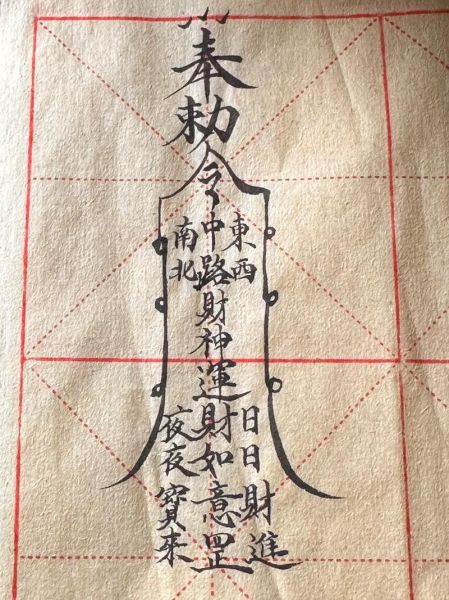 奉勅令
東西
南北
中路財神運財如意罡
日日財進
夜夜寶來